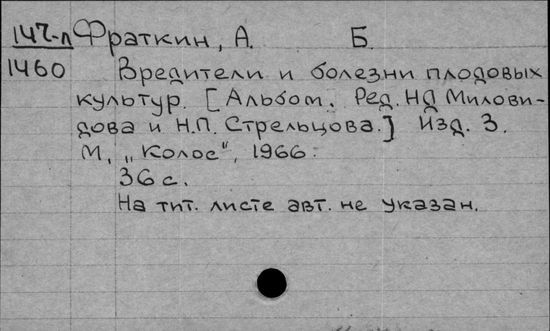 147-л Фраткин, А. Б.
1460 Вредители и болезни плодовых
культур. [Альбом. Ред. НД Милови-
дова и Н.П. Стрельцова.] Изд. 3.
М, „Колос", 1966.
36 с.
На тит. листе авт. не указан.